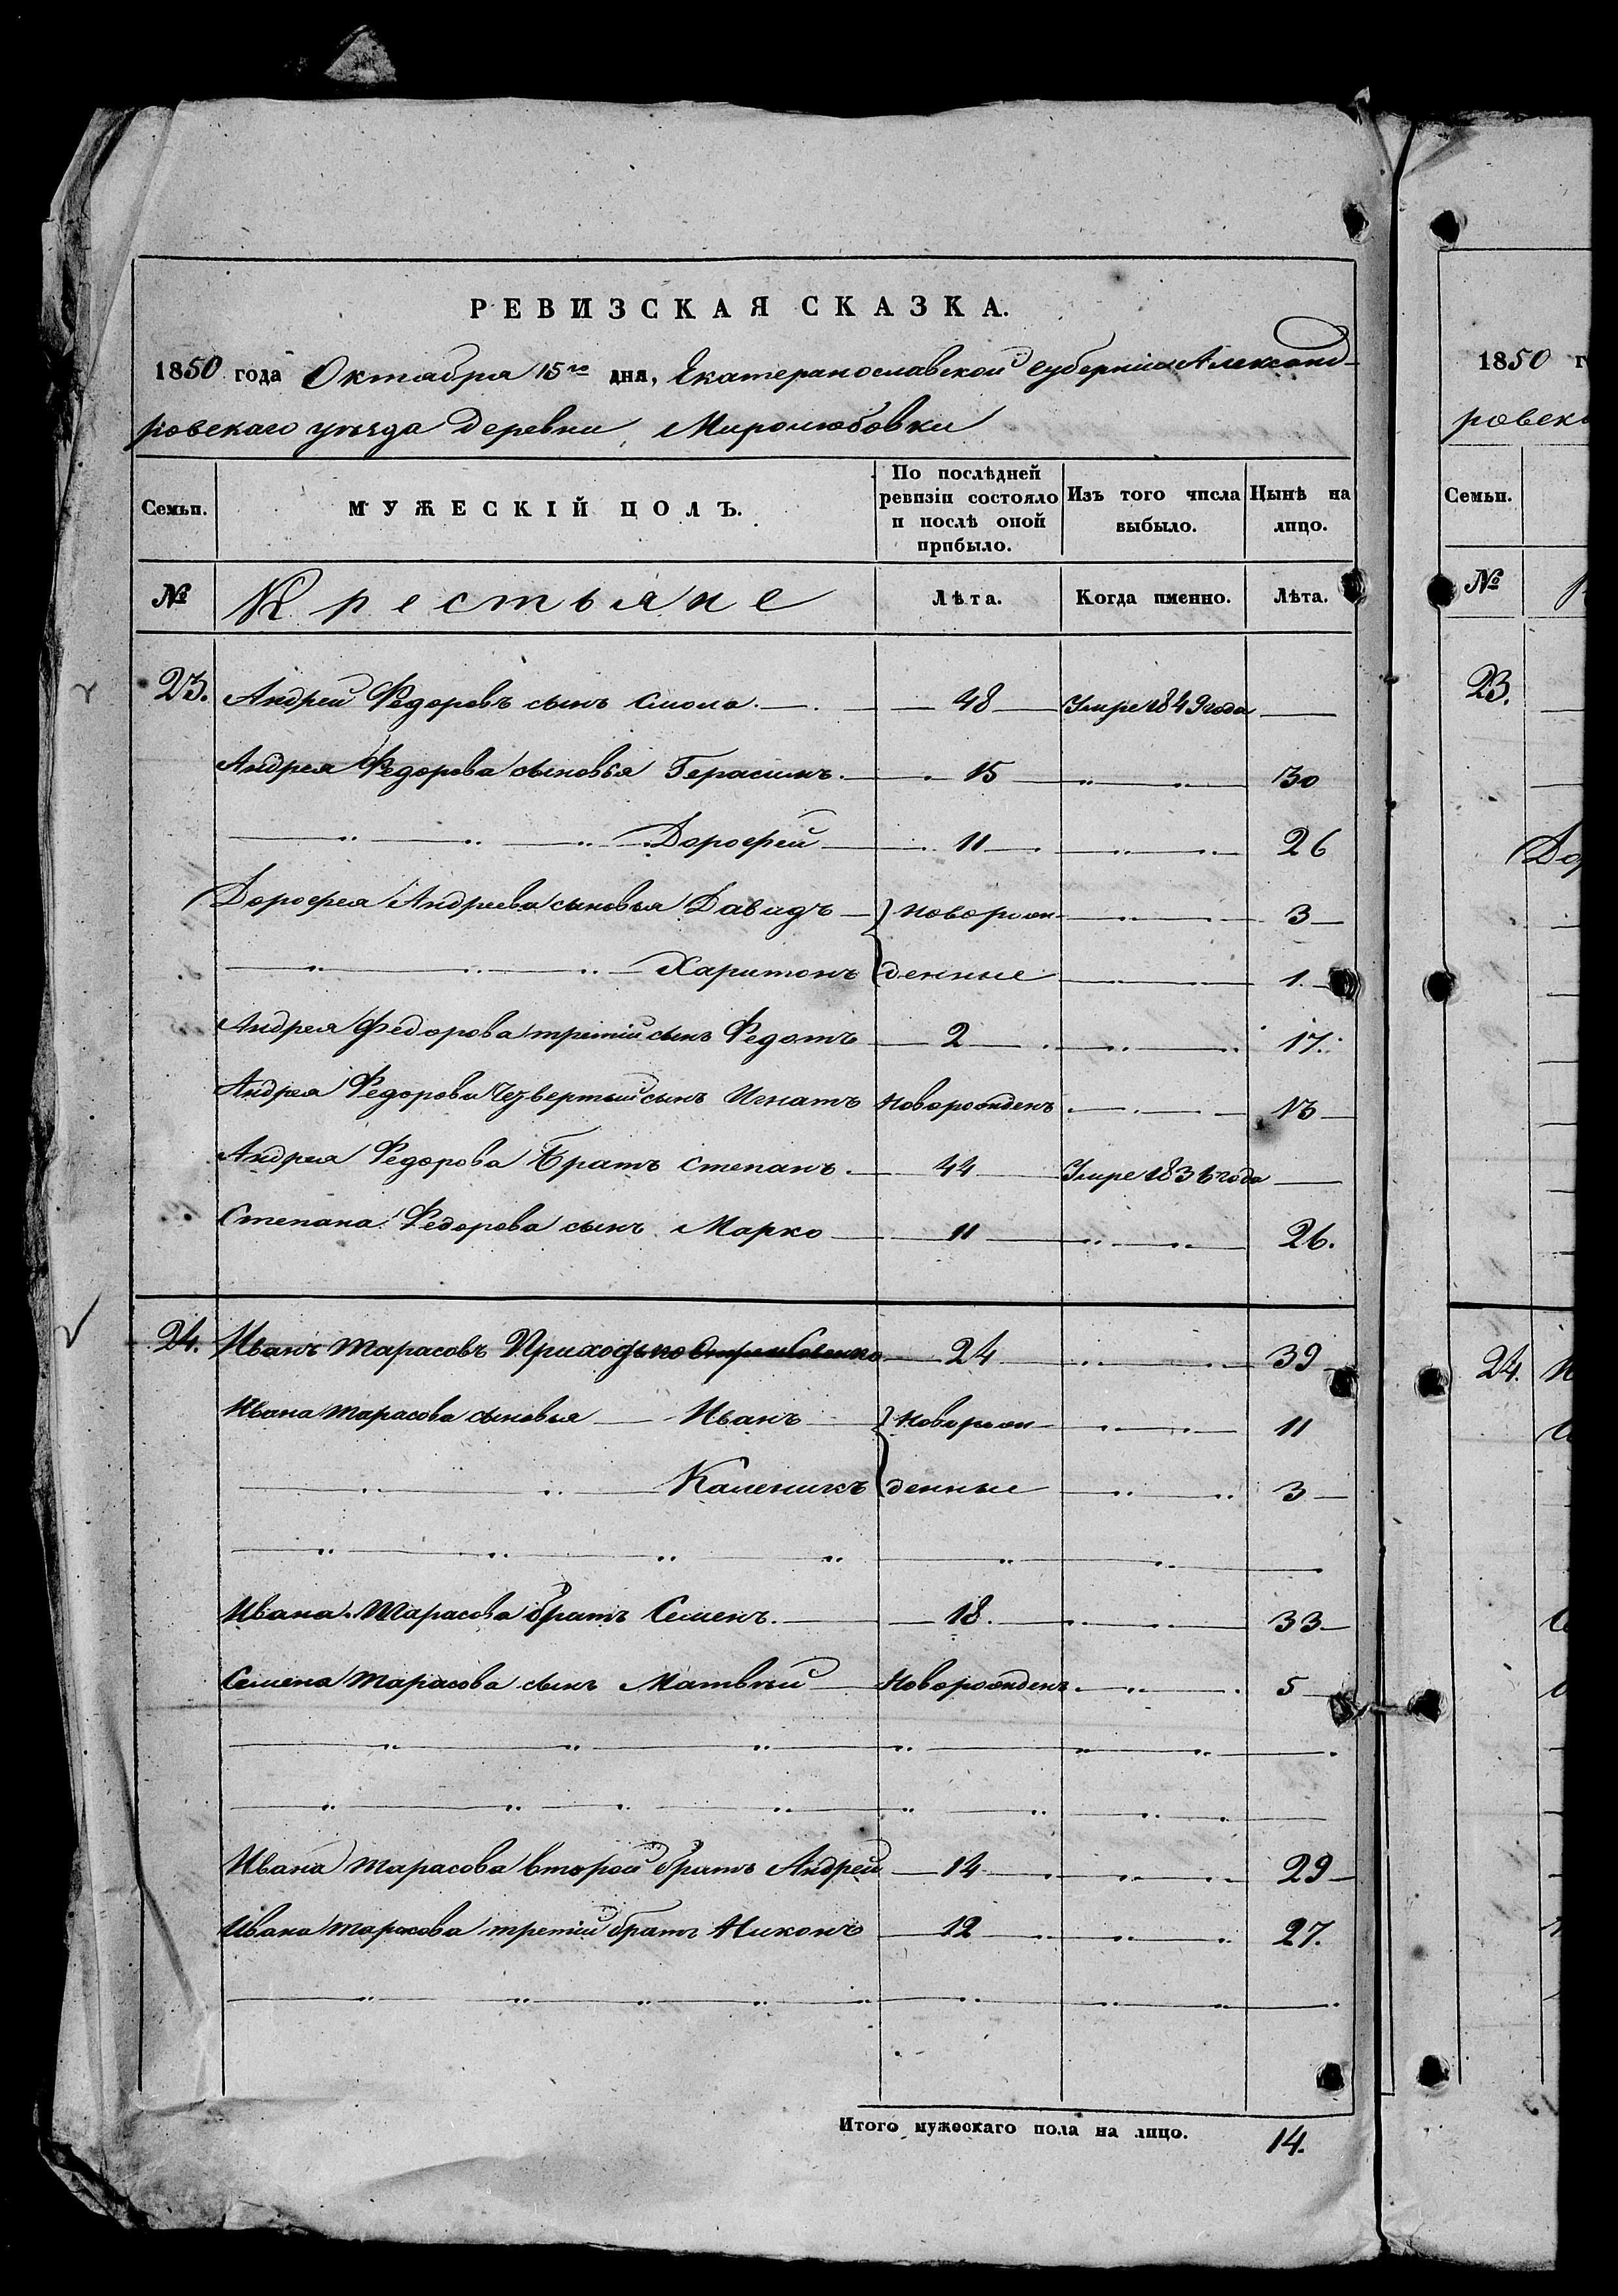 РЕВИЗСКАЯ СКАЗКА.
1850 года Октября 15го дня, Екатеранославской Губерніи Александ-
ровскаго уѣзда деревни Миролюбовки
Семьи. МУЖЕСКІЙ ПОЛЪ. По послѣдней ревизіи состояло и послѣ оной прибыло. Изъ того числа выбыло. Нынѣ на лицо.
№ Крестьяне Лѣта. Когда именно. Лѣта.
23. Андрей Федоровъ сынъ Смола 48 Умре 1849 года
Андрея Федорова сыновья Герасимъ 15 30
Дорофей 11 26
Дорофея Андреева сыновья Давидъ новорож- 3
Харитонъ денные 1
Андрея Федорова третій сынъ Федотъ 2 17.
Андрея Федорова Четвертый сынъ Игнатъ Новорожденъ 13
Андрея Федорова Братъ Степанъ 44 Умре 1836 года
Степана Федорова сынъ Марко 11 26.
24. Иванъ Тарасовъ Приходько 24 39
Ивана Тарасова сыновья Иванъ Новорож- 11
Каленикъ денные 3
Ивана Тарасова братъ Семенъ 18. 33
Семена Тарасова сынъ Матвѣй Новорожденъ 5
Ивана Тарасова второй братъ Андрей 14 29
Ивана Тарасова третій братъ Никонъ 12 27.
Итого мужескаго пола на лицо. 14.
1850 г
ровска
Семьи.
№
23.
До
24.